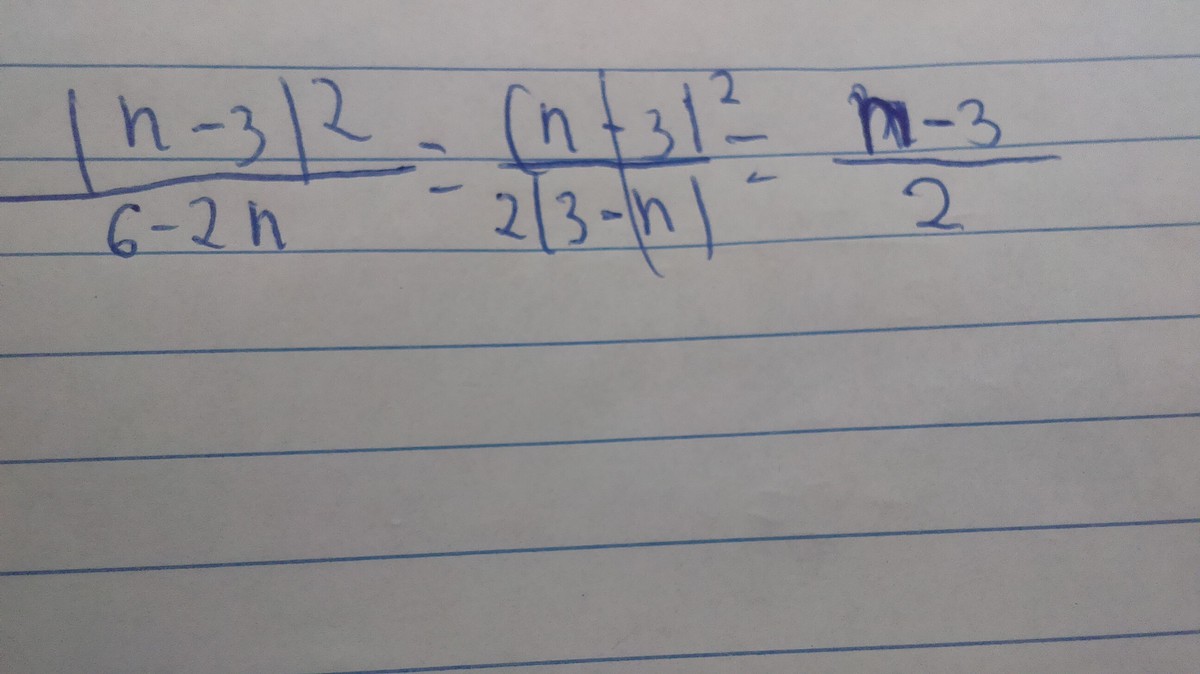 (n-3)² / 6-2n = (n-3)² / 2(3-n) = n-3 / 2